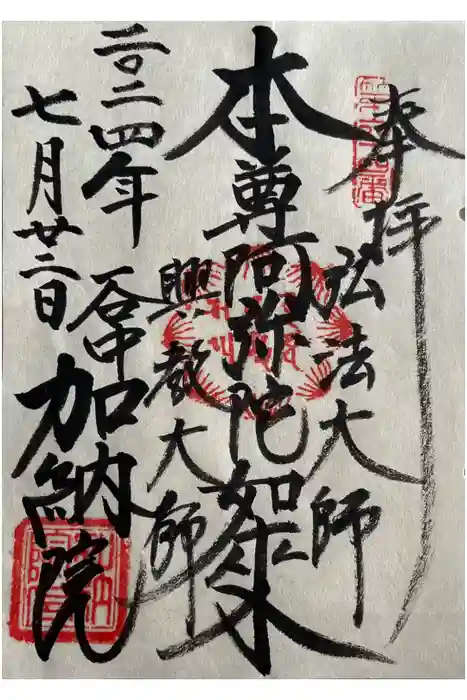 奉拝
弘法大師
本尊阿弥陀如来
興教大師
二〇二四年
七月廿二日
谷中
加納院